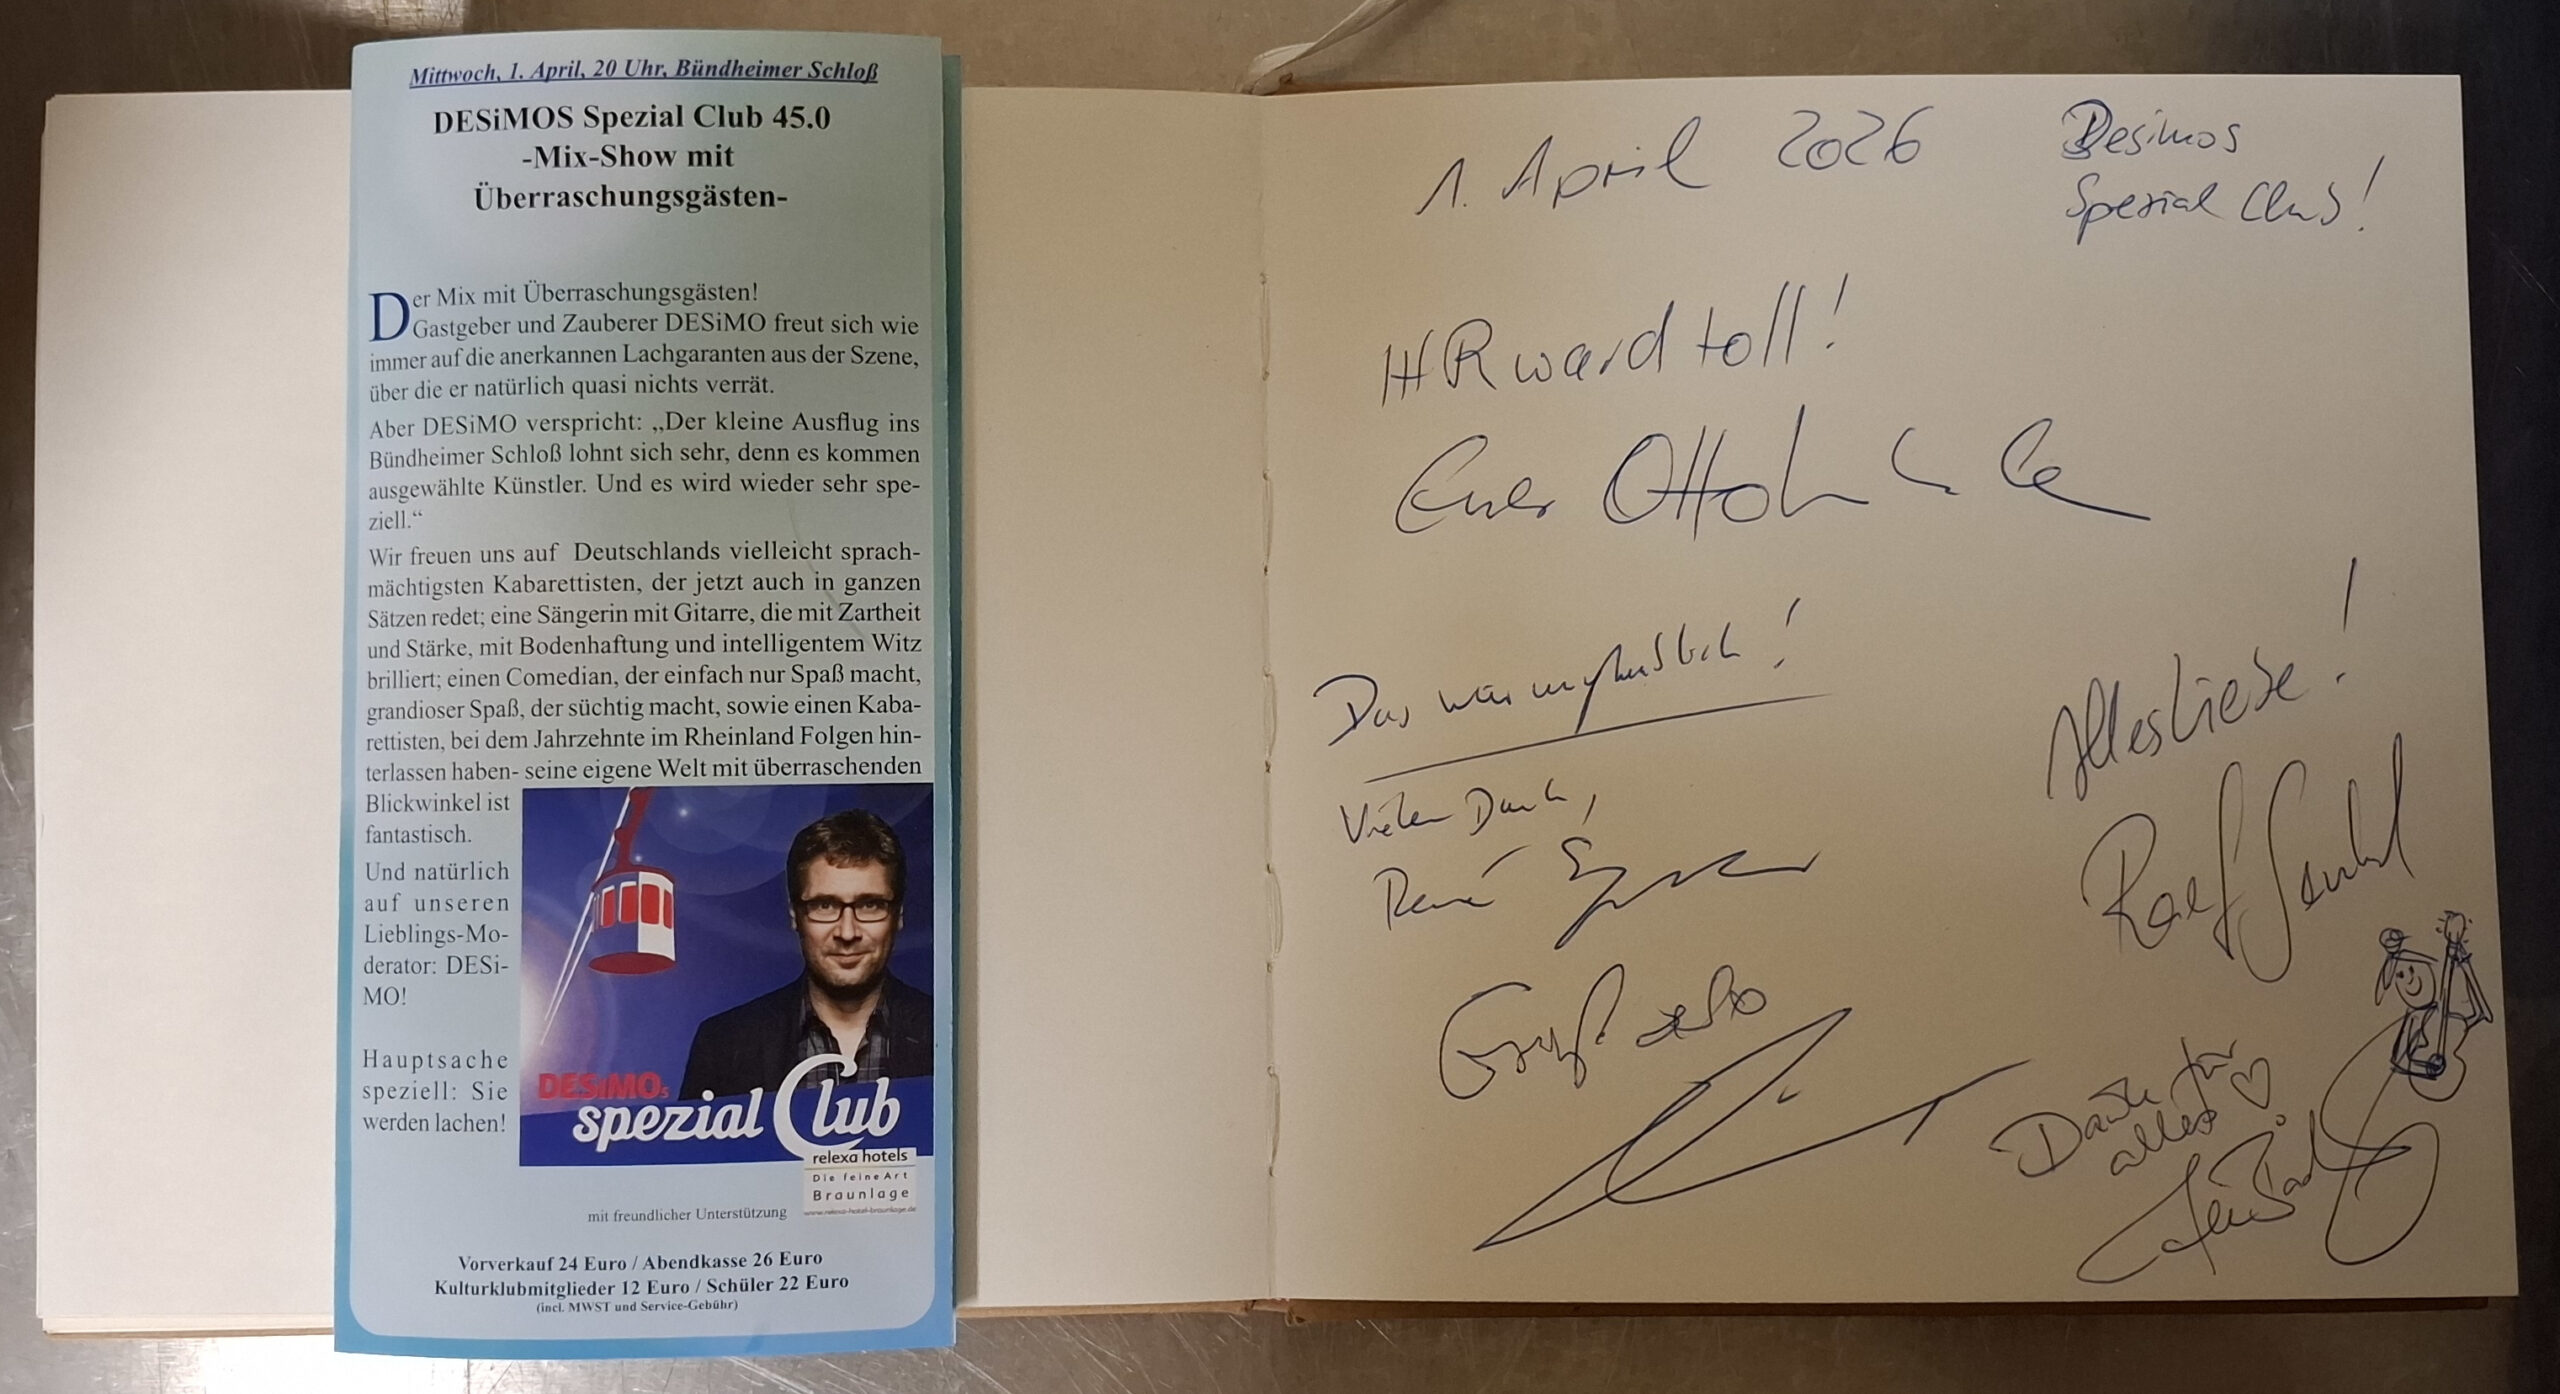 Mittwoch, 1. April, 20 Uhr, Bündheimer Schloß
DESiMOS Spezial Club 45.0
-Mix-Show mit
Überraschungsgästen-
Der Mix mit Überraschungsgästen!
Gastgeber und Zauberer DESiMO freut sich wie
immer auf die anerkannen Lachgaranten aus der Szene,
über die er natürlich quasi nichts verrät.
Aber DESiMO verspricht: „Der kleine Ausflug ins
Bündheimer Schloß lohnt sich sehr, denn es kommen
ausgewählte Künstler. Und es wird wieder sehr spe-
ziell.“
Wir freuen uns auf Deutschlands vielleicht sprach-
mächtigsten Kabarettisten, der jetzt auch in ganzen
Sätzen redet; eine Sängerin mit Gitarre, die mit Zartheit
und Stärke, mit Bodenhaftung und intelligentem Witz
brilliert; einen Comedian, der einfach nur Spaß macht,
grandioser Spaß, der süchtig macht, sowie einen Kaba-
rettisten, bei dem Jahrzehnte im Rheinland Folgen hin-
terlassen haben- seine eigene Welt mit überraschenden
Blickwinkel ist
fantastisch.
Und natürlich
auf unseren
Lieblings-Mo-
derator: DESi-
MO!
Hauptsache
speziell: Sie
werden lachen!
DESiMOs
spezial Club
relexa hotels
Die feine Art
Braunlage
www.relexa-hotel-braunlage.de
mit freundlicher Unterstützung
Vorverkauf 24 Euro / Abendkasse 26 Euro
Kulturklubmitglieder 12 Euro / Schüler 22 Euro
(incl. MWST und Service-Gebühr)
1. April 2026
Desimos
Spezial Club!
IHR ward toll!
Euer Otto
Das war unglaublich!
Vielen Dank,
René
Alles Liebe!
Danke für
alles